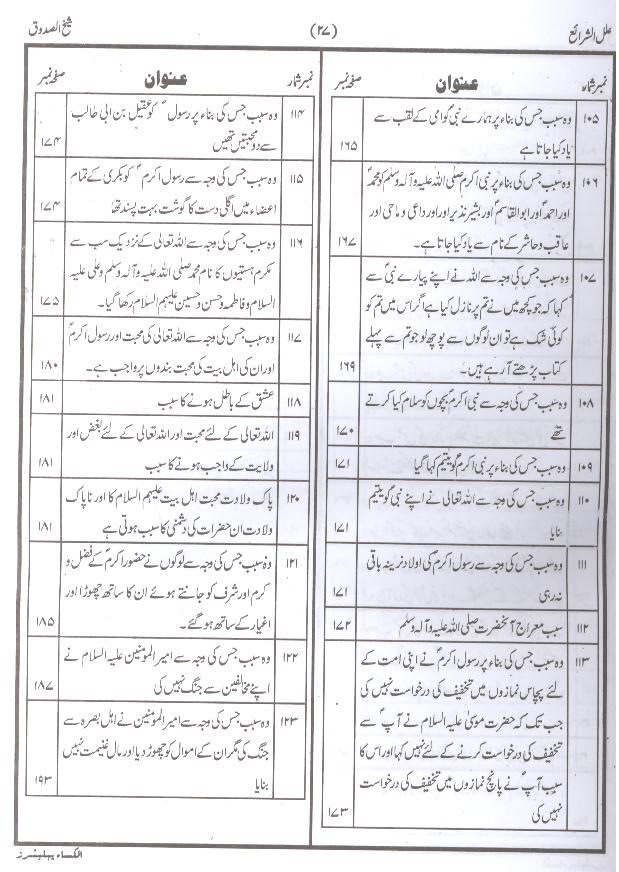 علل الشرائع (۲۷) شیخ الصدوق
نمبر شمار عنوان صفحہ نمبر
۱۰۵ وہ سبب جس کی بناء پر ہمارے نبیؐ کو امی کے لقب سے
یاد کیا جاتا ہے ۱۶۵
۱۰۶ وہ سبب جس کی بناء پر نبی اکرم صلی اللہ علیہ وآلہ وسلم کو محمدؐ
اور احمدؐ اور ابوالقاسمؐ اور بشیر نذیر اور اور داعی و ماحی اور
عاقب و حاشر کے نام سے یاد کیا جاتا ہے۔ ۱۶۷
۱۰۷ وہ سبب جس کی وجہ سے اللہ نے اپنے پیارے نبیؐ سے
کہا کہ جو کچھ میں نے تم پر نازل کیا ہے اگر اس میں تم کو
کوئی شک ہے تو ان لوگوں سے پوچھ لو جو تم سے پہلے
کتاب پڑھتے آرہے ہیں۔ ۱۶۹
۱۰۸ وہ سبب جس کی وجہ سے نبی اکرمؐ بچوں کو سلام کیا کرتے
تھے ۱۷۰
۱۰۹ وہ سبب جس کی بناء پر نبی اکرمؐ کو یتیم کہا گیا ۱۷۱
۱۱۰ وہ سبب جس کی وجہ سے اللہ تعالی نے اپنے نبیؐ کو یتیم
بنایا ۱۷۱
۱۱۱ وہ سبب جس کی وجہ سے رسول اکرمؐ کی اولاد نرینہ باقی
نہ رہی ۱۷۱
۱۱۲ سبب معراج آنحضرت صلی اللہ علیہ وآلہ وسلم ۱۷۲
۱۱۳ وہ سبب جس کی بناء پر رسول اکرمؐ نے اپنی امت کے
لئے پچاس نمازوں میں تخفیف کی درخواست نہیں کی
جب تک کہ حضرت موسیٰ علیہ السلام نے آپؐ سے
تخفیف کی درخواست کرنے کے لئے نہیں کہا اور اس کا
سبب آپؐ نے پانچ نمازوں میں تخفیف کی درخواست
نہیں کی ۱۷۳
نمبر شمار عنوان صفحہ نمبر
۱۱۴ وہ سبب جس کی بناء پر رسولؐ کو عقیل بن ابی طالب
سے دو محبتیں تھیں ۱۷۴
۱۱۵ وہ سبب جس کی وجہ سے رسول اکرمؐ کو بکری کے تمام
اعضاء میں اگلی دست کا گوشت بہت پسند تھا ۱۷۴
۱۱۶ وہ سبب جس کی وجہ سے اللہ تعالی کے نزدیک سب سے
مکرم ہستیوں کا نام محمد صلی اللہ علیہ وآلہ وسلم و علی علیہ
السلام و فاطمہ و حسن و حسین علیہم السلام رکھا گیا۔ ۱۷۵
۱۱۷ وہ سبب جس کی وجہ سے اللہ تعالی کی محبت اور رسول اکرمؐ
اور ان کی اہل بیت کی محبت بندوں پر واجب ہے۔ ۱۸۰
۱۱۸ عشق کے باطل ہونے کا سبب ۱۸۱
۱۱۹ اللہ تعالی کے لئے محبت اور اللہ تعالی کے لئے بغض اور
ولایت کے واجب ہونے کا سبب ۱۸۱
۱۲۰ پاک ولادت محبت اہل بیت علیہم السلام کا اور ناپاک
ولادت ان حضرات کی دشمنی کا سبب ہوتی ہے ۱۸۱
۱۲۱ وہ سبب جس کی وجہ سے لوگوں نے حضور اکرمؐ کے فضل و
کرم اور شرف کو جانتے ہوئے ان کا ساتھ چھوڑا اور
اغیار کے ساتھ ہوگئے۔ ۱۸۵
۱۲۲ وہ سبب جس کی وجہ سے امیر المومنین علیہ السلام نے
اپنے مخالفین سے جنگ نہیں کی ۱۸۷
۱۲۳ وہ سبب جس کی وجہ سے امیر المومنین نے اہل بصرہ سے
جنگ کی مگر ان کے اموال کو چھوڑ دیا اور مال غنیمت نہیں
بنایا ۱۹۳
الکساء پبلیشرز